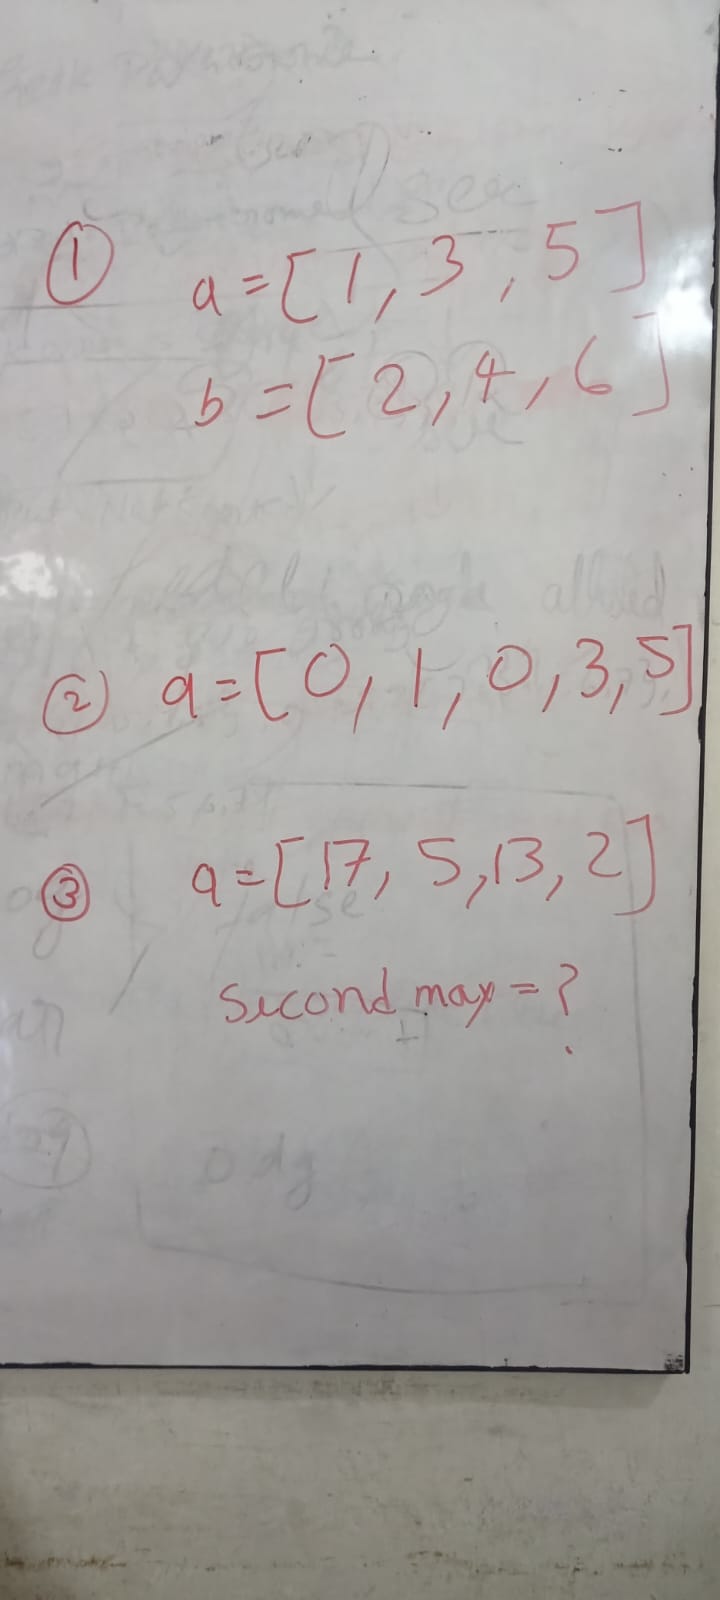 ① a=[1, 3, 5]
b=[2,4,6]
② a=[0, 1, 0, 3, 5]
③ a=[17, 5,13, 2]
Second max=?